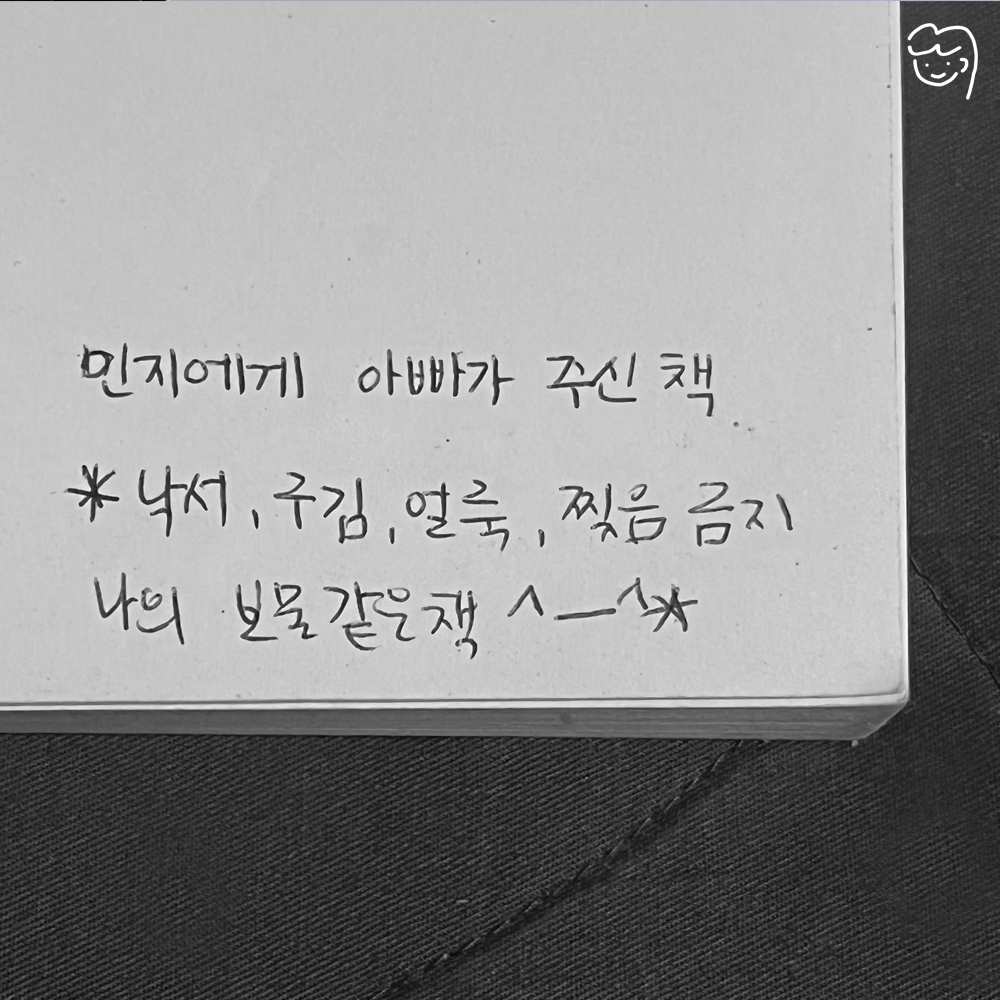 민지에게 아빠가 주신 책
*낙서, 구김, 얼룩, 찢음 금지
나의 보물같은책 ^—^*